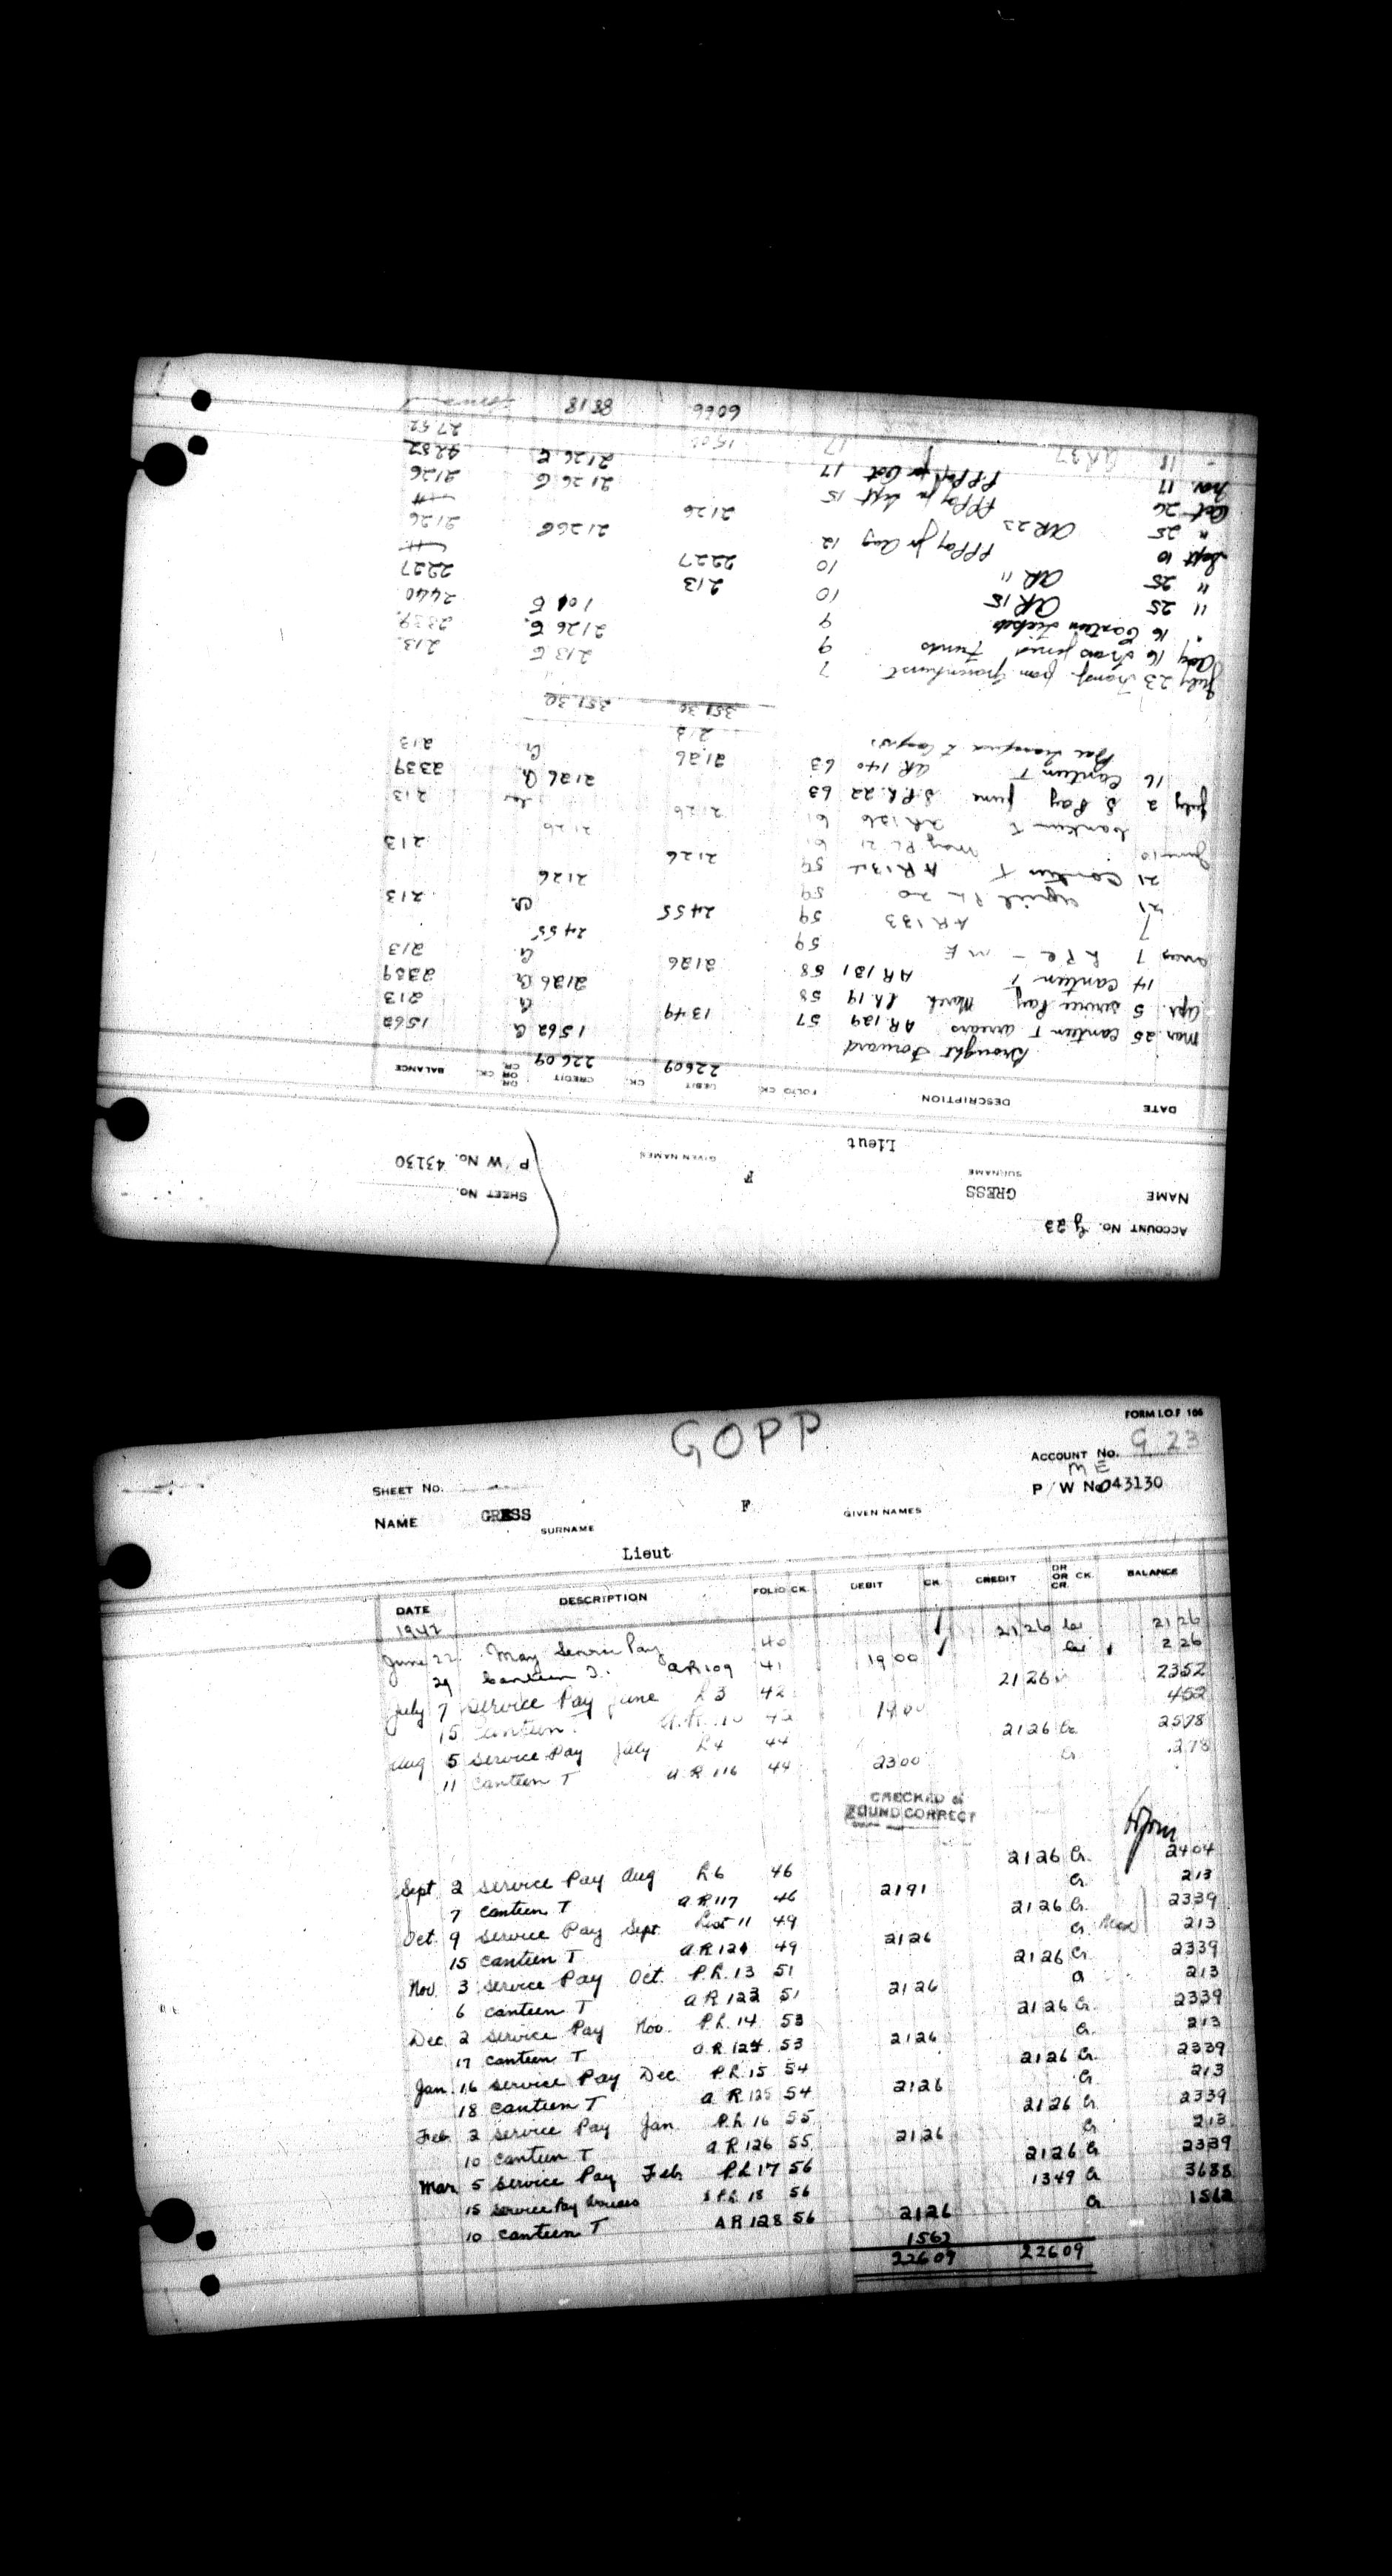 ACCOUNT No. G 23
SHEET No.
NAME GRESS F P/W No. 43130
SURNAME GIVEN NAMES
Lieut
DATE DESCRIPTION FOLIO CK. DEBIT CK. CREDIT DR OR CR. CK. BALANCE
Brought Forward 22609 22609
Mar. 25 Canteen T arrears AR 129 57 1349 1562 Cr 1562
213
Apr. 5 Service Pay March P.L. 19 58 2126 Cr 2339
14 Canteen T AR 131 58 2126 Cr 213
7 M E 59 2455
7 AR 133 59 2455 Cr. 213
21 April PL 20 59 2126
21 Canteen T AR 134 59 2126 213
June 10 May PL 21 61 2126
Canteen T AR 136 61 2126 213
July 2 S. Pay June S.P.L. 22 63 2126 Cr 2339
16 Canteen T AR 140 63 2126 Cr 213
213
351.30 351.30
July 23 Transf. from Gravenhurst 7 213 213
Aug 16 Funds 9 2126 2339
" 16 Canteen Tickets 9 101 2440
" 25 AR 15 10 213 2227
" 25 AR 11 10 2227
Sept 10 PPPay for Aug 12 2126 2126
" 25 AR 23 2126
Oct 26 PPPay for Sept 15 2126 2126
Nov. 17 PPPay for Oct 17 2126 4252
" 18 AR 37 17 1500 2752
6066 8818
GOPP
FORM I.O.F 106
ACCOUNT No. G 23
SHEET No. ME
P/W No 43130
NAME GRESS F
SURNAME GIVEN NAMES
Lieut
DATE DESCRIPTION FOLIO CK. DEBIT CK. CREDIT DR OR CR. CK. BALANCE
1942
June 22 May Service Pay 40 2126 Cr 2126
29 Canteen T. AR 109 41 1900 Cr 226
July 7 Service Pay June L 3 42 2126 2352
15 Canteen T 1900 452
Aug 5 Service Pay July L 4 44 2126 Cr 2578
11 Canteen T A.R. 116 44 2300 Cr 278
CHECKED &
FOUND CORRECT
Sept 2 Service Pay Aug L 6 46 2126 Cr. 2404
7 Canteen T A R 117 46 2191 Cr. 213
Oct. 9 Service Pay Sept. List 11 49 2126 Cr. 2339
15 Canteen T A R 121 49 2126 Cr 213
Nov. 3 Service Pay Oct. P.L. 13 51 2126 Cr 2339
6 Canteen T A R 123 51 2126 Cr 213
Dec. 2 Service Pay Nov. P.L. 14 53 2126 Cr. 2339
17 Canteen T A.R. 124 53 2126 Cr. 213
Jan 16 Service Pay Dec P.L. 15 54 2126 Cr. 2339
18 Canteen T A R 125 54 2126 Cr 213
Feb 2 Service Pay Jan. P.L 16 55 2126 Cr 2339
10 Canteen T A R 126 55 2126 Cr 213
Mar 5 Service Pay Feb P L 17 56 2126 Cr 2339
15 Service Pay Arrears S P L 18 56 1349 Cr 3688
10 Canteen T A R 128 56 2126 Cr 1562
1562
22609 22609